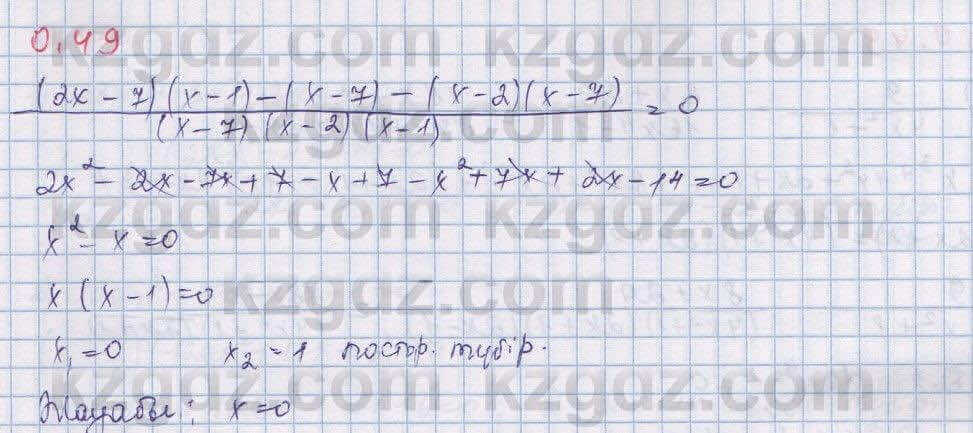 0.49
(2x - 7)(x - 1) - (x - 7) - (x - 2)(x - 7)
(x - 7)(x - 2)(x - 1) = 0
2x² - 2x - 7x + 7 - x + 7 - x² + 7x + 2x - 14 = 0
x² - x = 0
x(x - 1) = 0
x₁ = 0 x₂ = 1 постор. түбір.
Жауабы: x = 0
kzgdz.com kzgdz.com
kzgdz.com kzgdz.com
kzgdz.com
kzgdz.com kzgdz.com